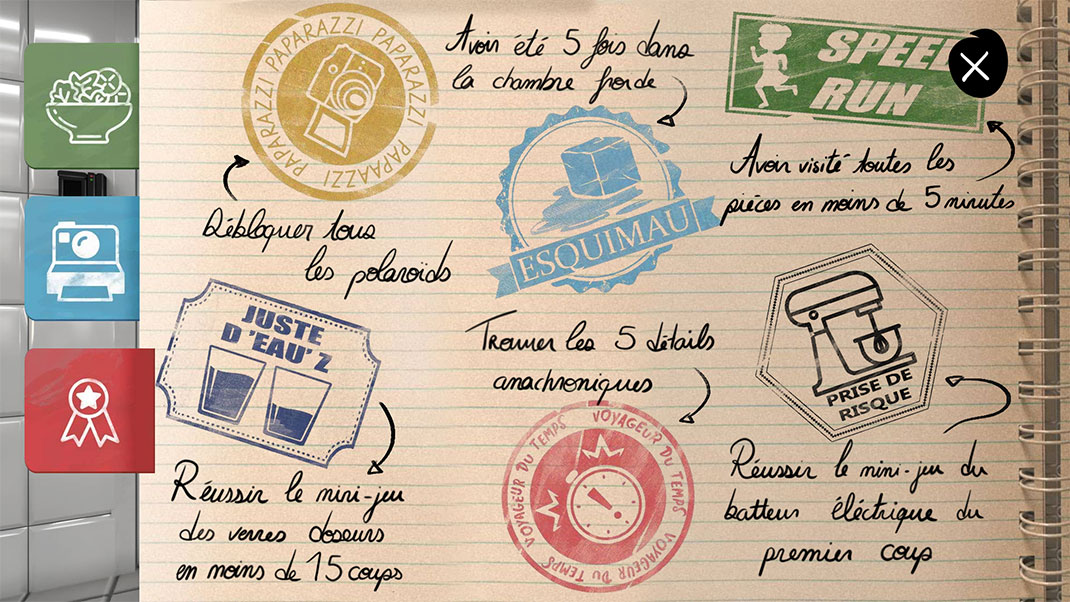 PAPARAZZI PAPARAZZI PAPARAZZI PAPAAZZI
Débloquer tous
les polaroïds
Avoir été 5 fois dans
la chambre froide
ESQUIMAU
SPEED
RUN
Avoir visité toutes les
pièces en moins de 5 minutes
JUSTE
D'EAU'Z
Réussir le mini-jeu
des verres doseurs
en moins de 15 coups
Trouver les 5 détails
anachroniques
VOYAGEUR DU TEMPS VOYAGEUR DU TEMPS VOYAGEUR DU TEMPS
PRISE DE
RISQUE
Réussir le mini-jeu du
batteur éléctrique du
premier coup